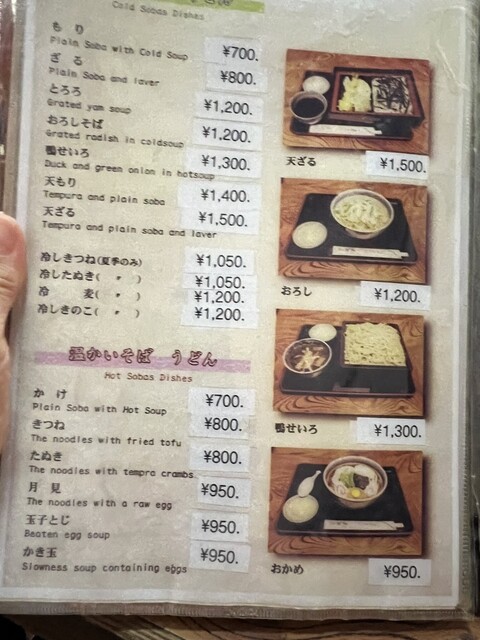 Cold Sobas Dishes
もり ¥700.
Plain Soba with Cold Soup
ざる ¥800.
Plain Soba and laver
とろろ ¥1,200.
Grated yam soup
おろしそば ¥1,200.
Grated radish in coldsoup
鴨せいろ ¥1,300.
Duck and green onion in hotsoup
天もり ¥1,400.
Tempura and plain soba
天ざる ¥1,500.
Tempura and plain soba and laver
冷しきつね(夏季のみ) ¥1,050.
冷したぬき( 〃 ) ¥1,050.
冷 麦( 〃 ) ¥1,200.
冷しきのこ( 〃 ) ¥1,200.
温かいそば うどん
Hot Sobas Dishes
かけ ¥700.
Plain Soba with Hot Soup
きつね ¥800.
The noodles with fried tofu
たぬき ¥800.
The noodles with tempra crambs
月見 ¥950.
The noodles with a raw egg
玉子とじ ¥950.
Beaten egg soup
かき玉 ¥950.
Slowness soup containing eggs
天ざる ¥1,500.
おろし ¥1,200.
鴨せいろ ¥1,300.
おかめ ¥950.